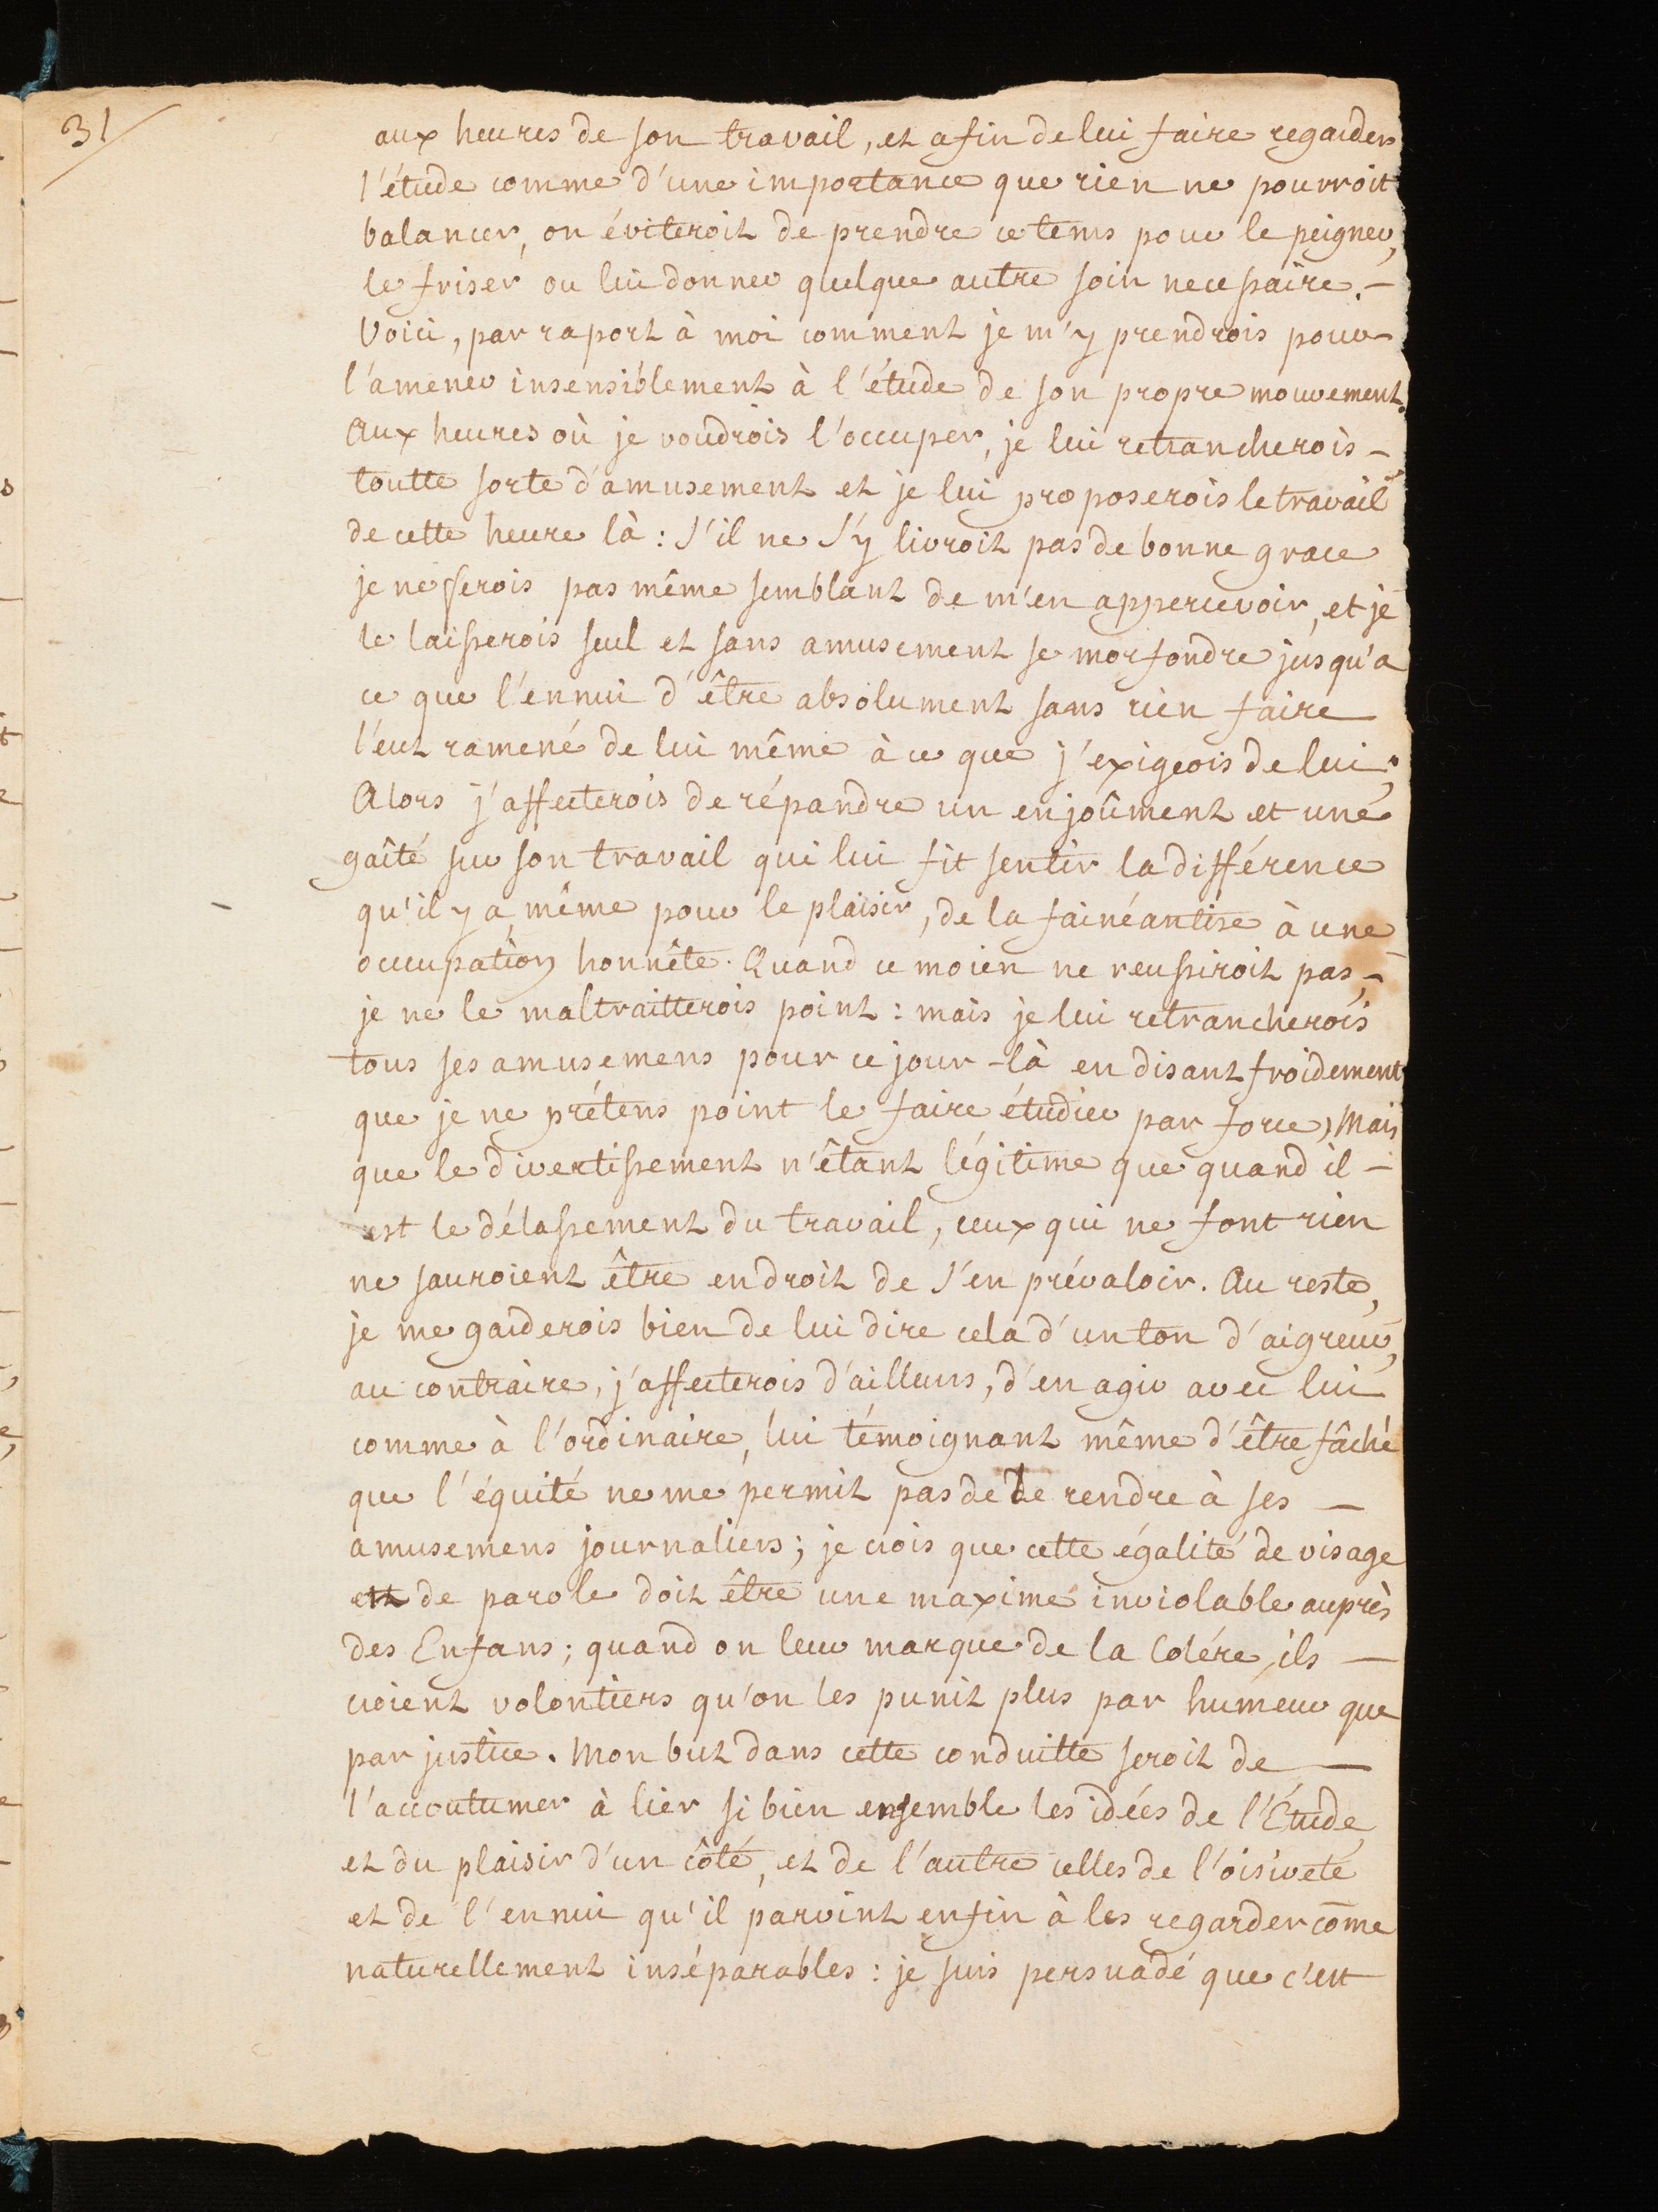 31
aux heures de son travail, et afin de lui faire regarder
l'étude comme d'une importance que rien ne pourroit
balancer, on éviteroit de prendre ce tems pour le peigner,
le friser ou lui donner quelque autre soin necessaire. –
Voici, par raport à moi comment je m'y prendrois pour
l'amener insensiblement à l'étude de son propre mouvement.
Aux heures où je voudrois l'occuper, je lui retrancherois –
toutte sorte d'amusement et je lui proposerois le travail
de cette heure là : s'il ne s'y livroit pas de bonne grace
je ne ferois pas même semblant de m'en appercevoir, et je
le laisserois seul et sans amusement se morfondre jusqu'a
ce que l'ennui d'être absolument sans rien faire
l'eut ramené de lui même à ce que j'exigeois de lui;
Alors j'affecterois de répandre un enjoûment et une
gaîté sur son travail qui lui fit sentir la différence
qu'il y a, même pour le plaisir, de la fainéantise à une
occupation honnête. Quand ce moien ne reussiroit pas, –
je ne le maltraitterois point : mais je lui retrancherois
tous ses amusemens pour ce jour-là en disant froidement
que je ne prétens point le faire étudier par force, Mais
que le divertissement n'étant légitime que quand il –
est le délassement du travail, ceux qui ne font rien
ne sauroient être en droit de s'en prévaloir. Au reste,
je me garderois bien de lui dire cela d'un ton d'aigreur,
au contraire, j'affecterois d'ailleurs, d'en agir avec lui
comme à l'ordinaire, lui témoignant même d'être fâché
que l'équité ne me permit pas de le rendre à ses –
amusemens journaliers ; je crois que cette égalité de visage
et de parole doit être une maxime inviolable auprès
des Enfans ; quand on leur marque de la Colére, ils –
croient volontiers qu'on les punit plus par humeur que
par justice. Mon but dans cette conduitte seroit de –
l'accoutumer à lier si bien ensemble les idées de l'Étude,
et du plaisir d'un côté, et de l'autre celles de l'oisiveté
et de l'ennui qu'il parvint enfin à les regarder cōme
naturellement inséparables : je suis persuadé que c'est